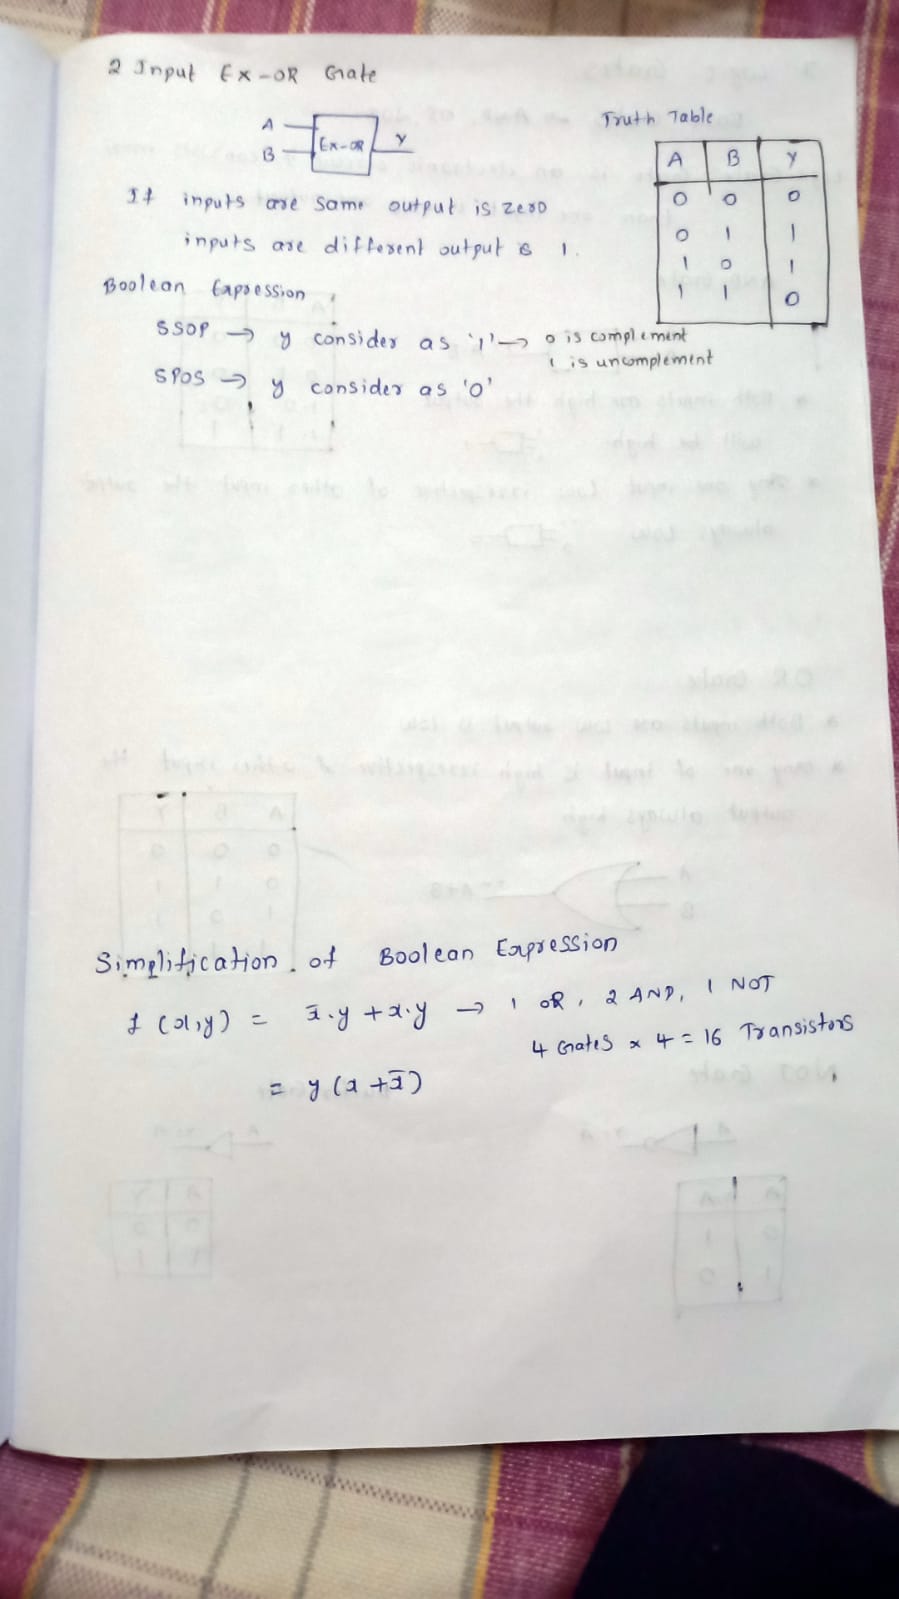 2 Input Ex-OR Gate
A
B
Ex-OR
Y
Truth Table
A B Y
0 0 0
0 1 1
1 0 1
1 1 0
If inputs are same output is zero
inputs are different output is 1.
Boolean Expression
SSOP → y consider as '1' → 0 is complement
1 is uncomplement
SPOS → y consider as '0'
Simplification of Boolean Expression
f(x,y) = x̄.y + x.y → 1 OR, 2 AND, 1 NOT
4 Gates x 4 = 16 Transistors
= y(x + x̄)